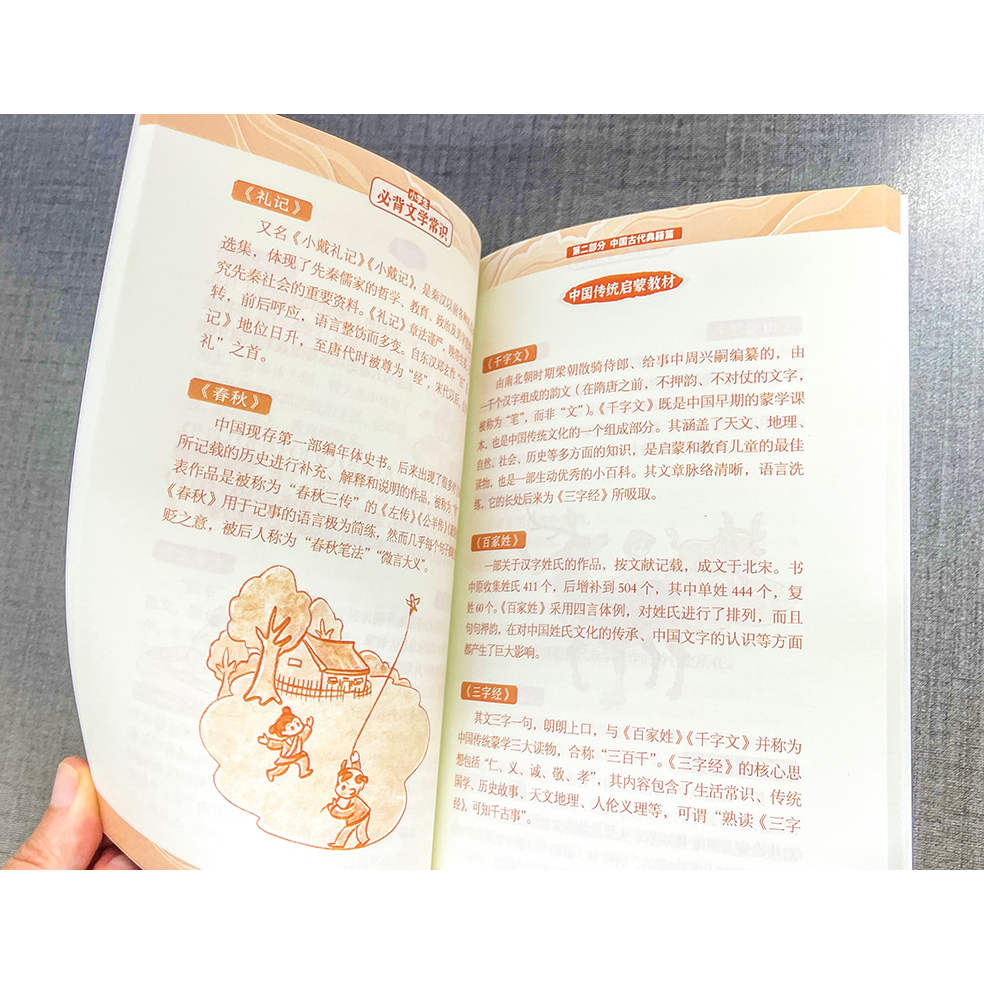 小学生
必背文学常识
《礼记》
又名《小戴礼记》《小戴记》，是秦汉以前
选集，体现了先秦儒家的哲学、教育、政治及
究先秦社会的重要资料。《礼记》章法谨严，
转，前后呼应，语言整饬而多变。自东汉郑玄作
记》地位日升，至唐代时被尊为“经”，宋代以后，
礼”之首。
《春秋》
中国现存第一部编年体史书。后来出现了很多
所记载的历史进行补充、解释和说明的作品，被称为
表作品是被称为“春秋三传”的《左传》《公羊传》
《春秋》用于记事的语言极为简练，然而几乎每个句子
贬之意，被后人称为“春秋笔法”“微言大义”。
第二部分 中国古代典籍篇
中国传统启蒙教材
《千字文》
由南北朝时期梁朝散骑侍郎、给事中周兴嗣编纂的，由
一千个汉字组成的韵文（在隋唐之前，不押韵、不对仗的文字，
被称为“笔”，而非“文”）。《千字文》既是中国早期的蒙学课
本，也是中国传统文化的一个组成部分。其涵盖了天文、地理、
自然、社会、历史等多方面的知识，是启蒙和教育儿童的最佳
读物，也是一部生动优秀的小百科。其文章脉络清晰，语言洗
练，它的长处后来为《三字经》所吸取。
《百家姓》
一部关于汉字姓氏的作品，按文献记载，成文于北宋。书
中原收集姓氏 411 个，后增补到 504 个，其中单姓 444 个，复
姓 60 个。《百家姓》采用四言体例，对姓氏进行了排列，而且
句句押韵，在对中国姓氏文化的传承、中国文字的认识等方面
都产生了巨大影响。
《三字经》
其文三字一句，朗朗上口，与《百家姓》《千字文》并称为
中国传统蒙学三大读物，合称“三百千”。《三字经》的核心思
想包括“仁、义、诚、敬、孝”，其内容包含了生活常识、传统
国学、历史故事、天文地理、人伦义理等，可谓“熟读《三字
经》，可知千古事”。